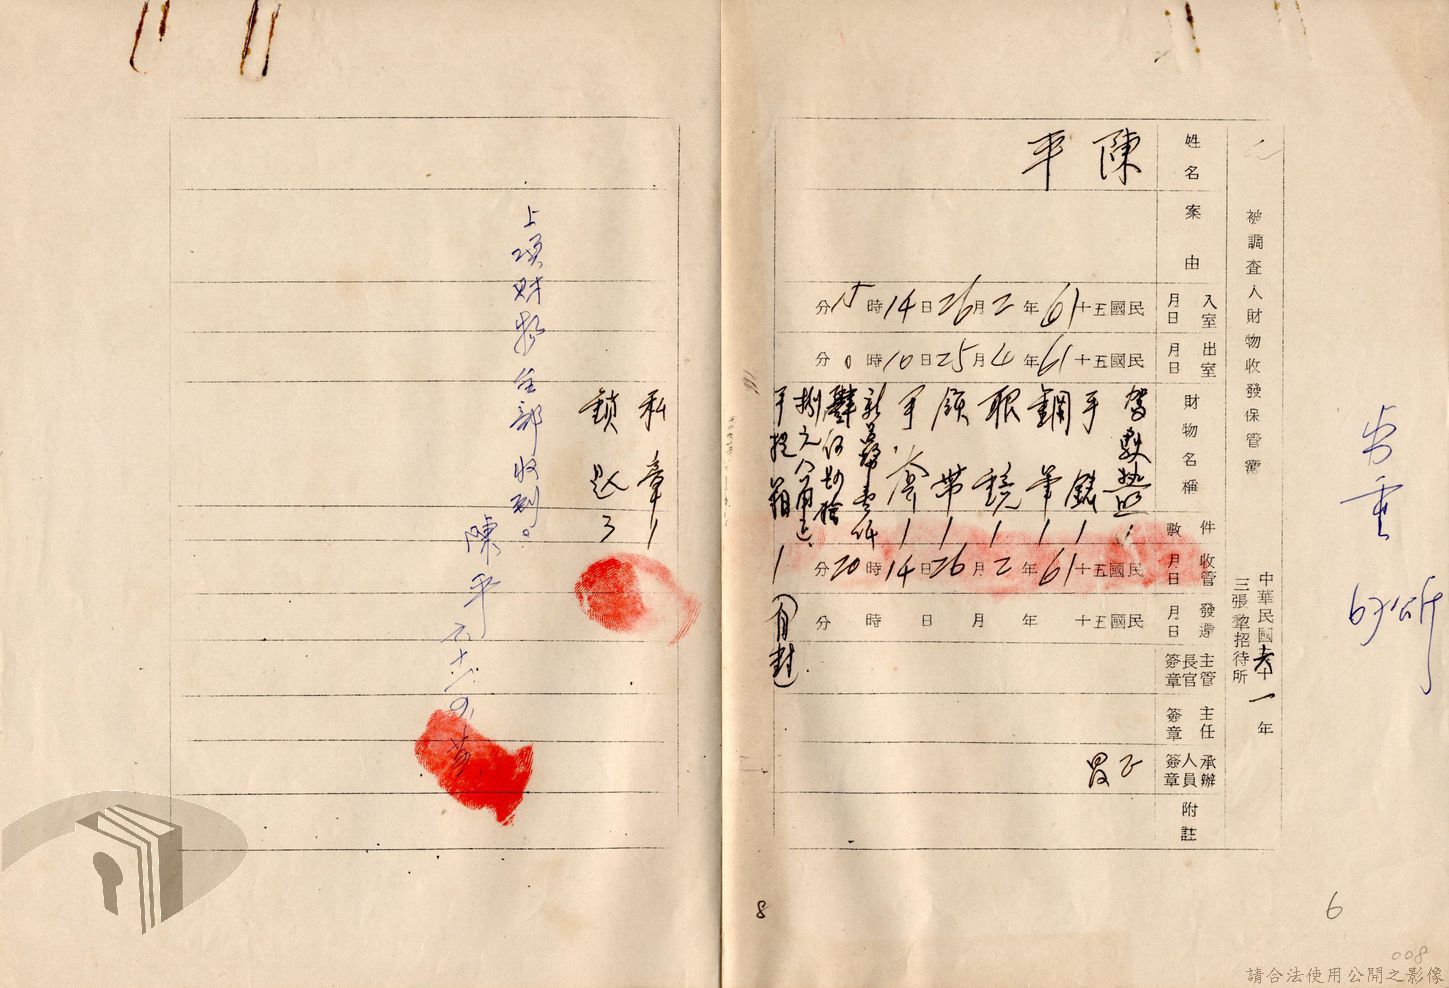 被調查人財物收發保管簿
中華民國六十一年
三張犁招待所
姓名
陳平
案由
入室月日
民國五十61年2月26日14時15分
出室月日
民國五十61年4月25日10時0分
財物名稱
件數
駕駛執照1
手錶1
鋼筆1
眼鏡1
領帶1
1
新台幣壹仟
捌元八角正
手提箱1
收管月日
民國五十61年2月26日14時20分
發還月日
民國五十 年 月 日 時 分
主管長官簽章
主任簽章
承辦人員簽章
附註
私章1
鎖匙3
上項財物全部收到。
陳平
8
6
008
請合法使用公開之影像